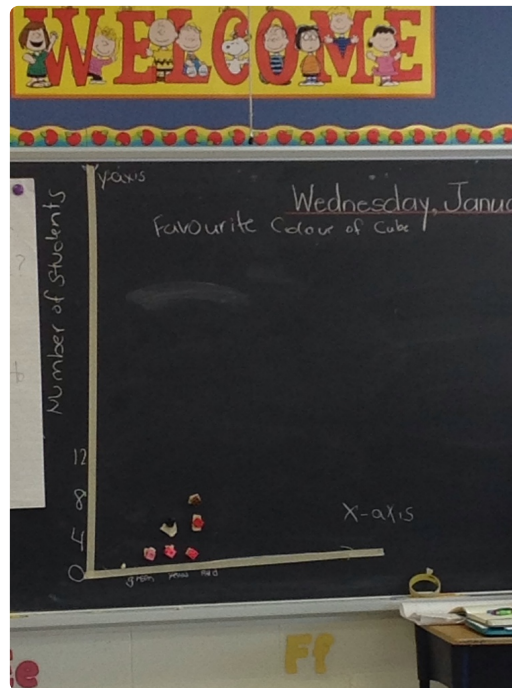 WELCOME
y-axis
Wednesday, Janua
Favourite Colour of Cube
Number of Students
?
12
8
4
0
X-axis
green
Red
Ff
e